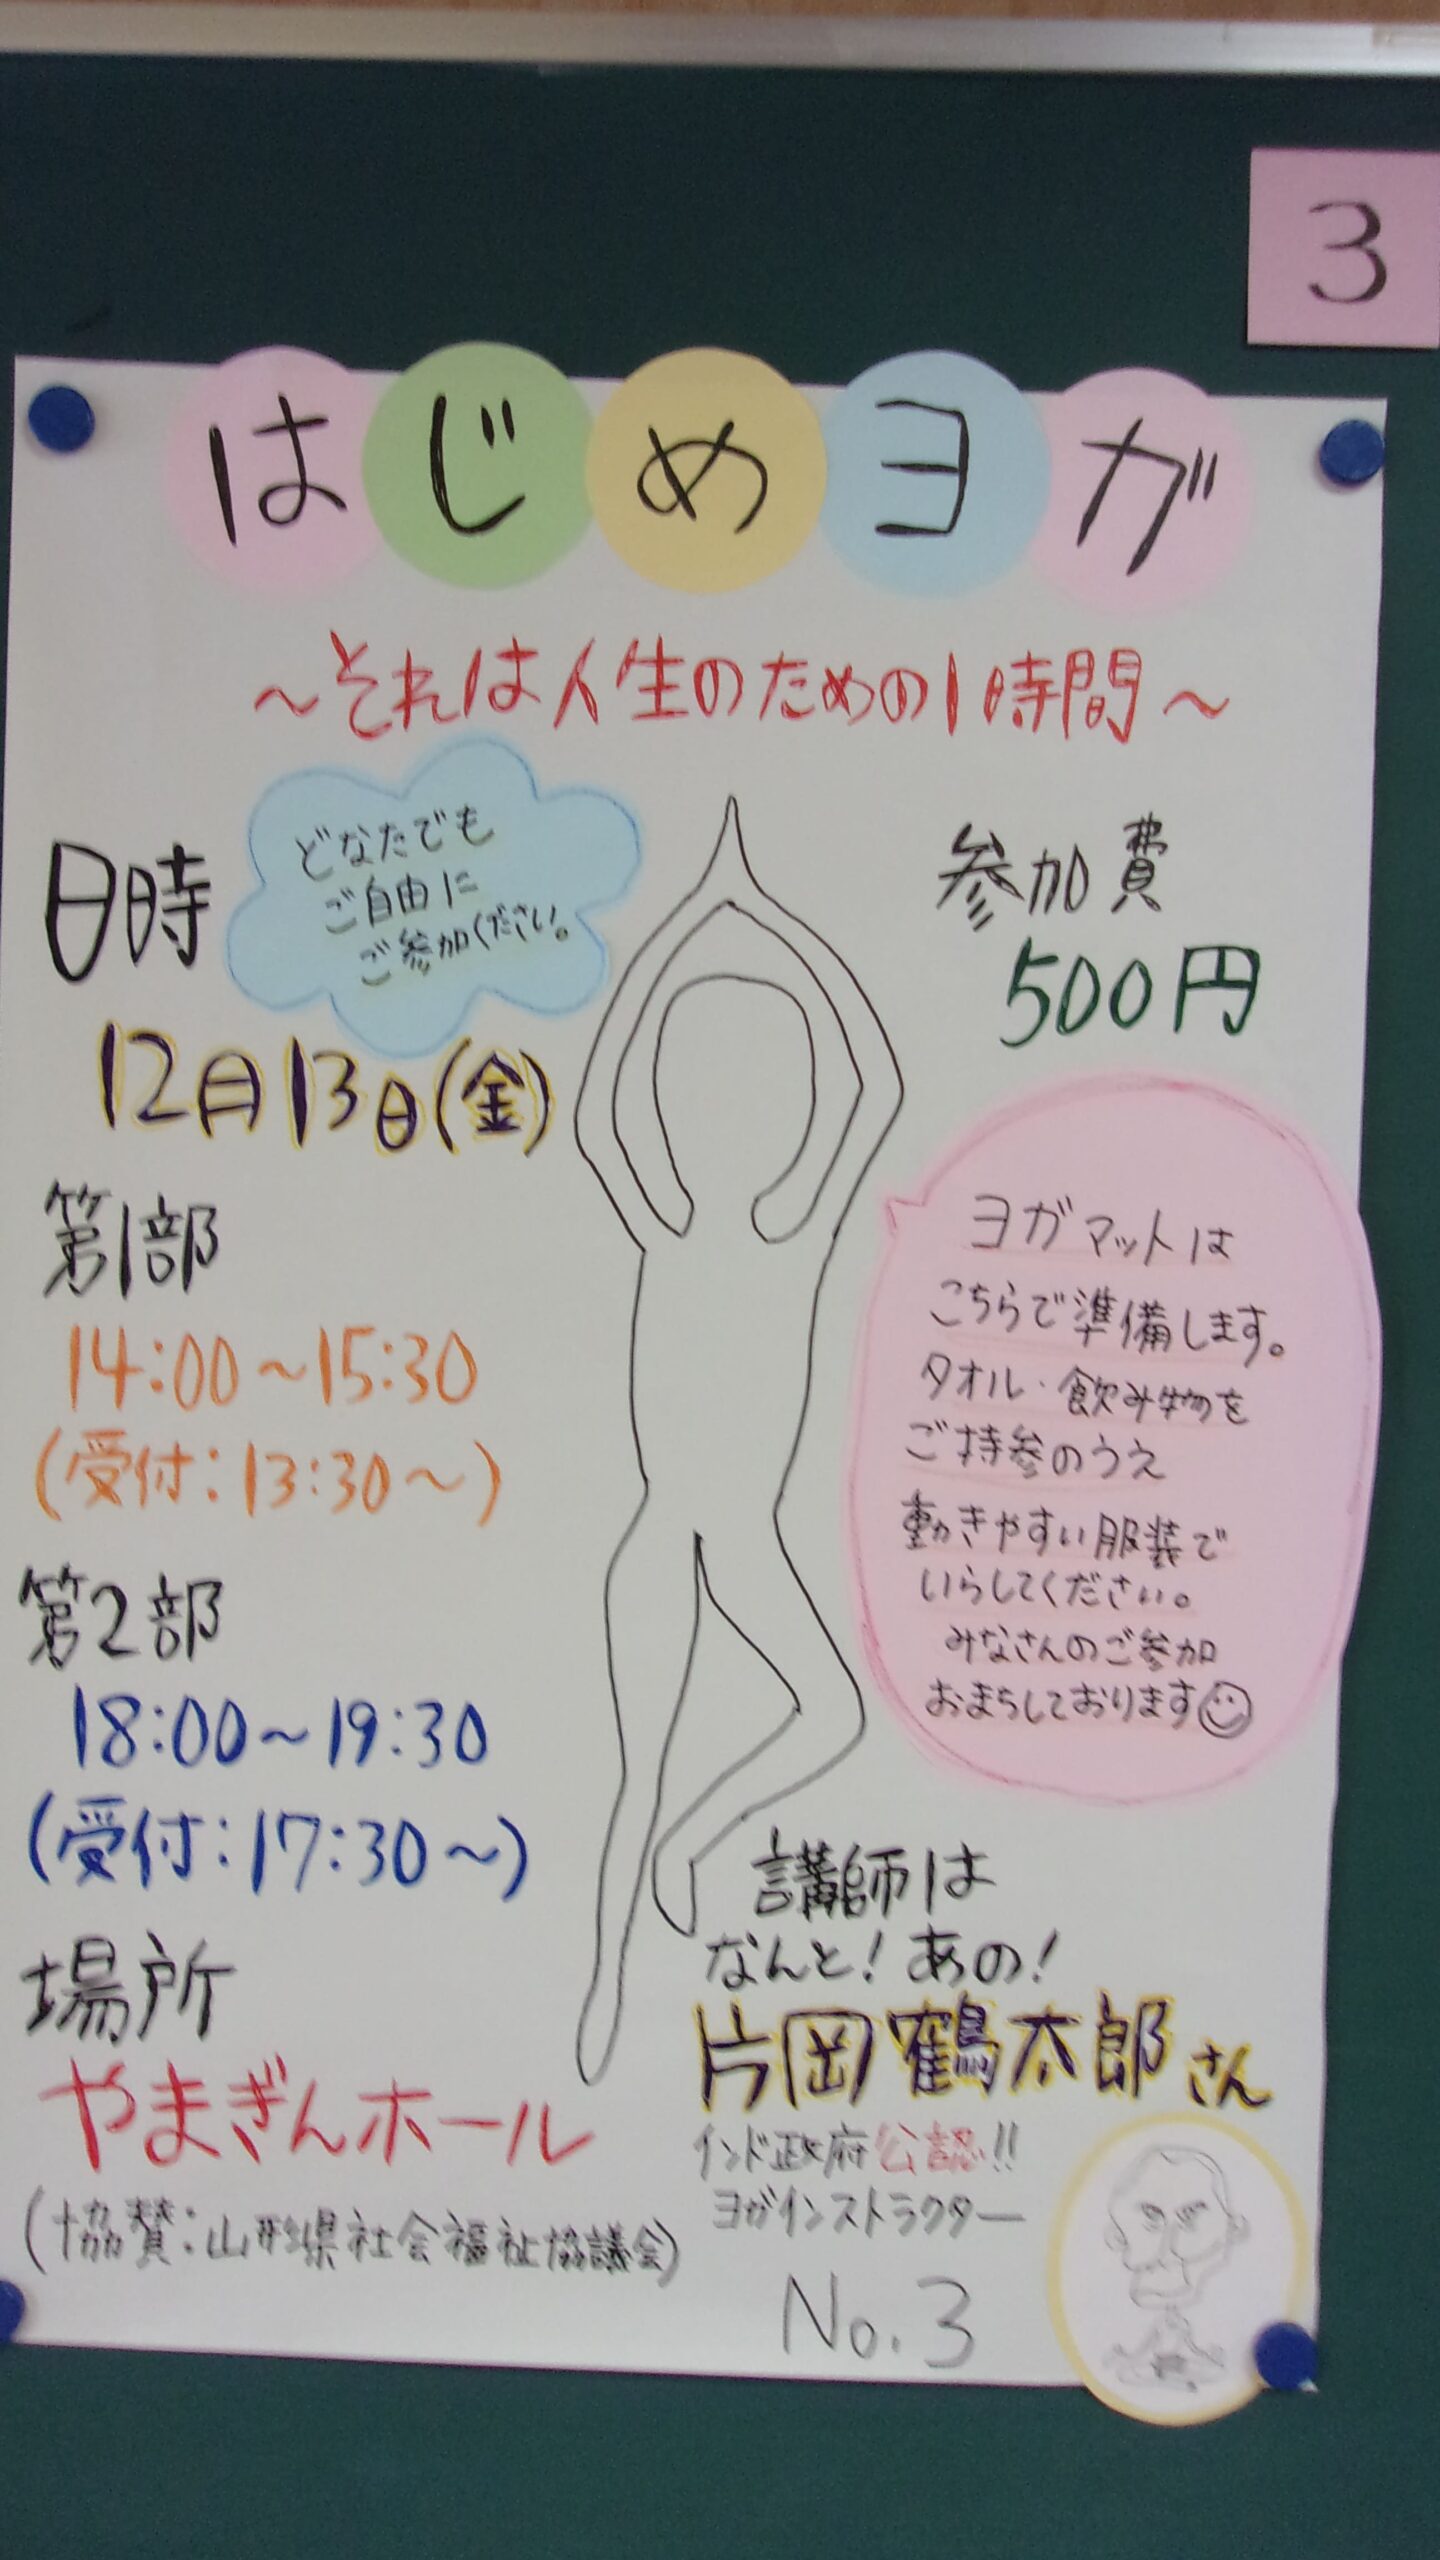 3
はじめヨガ
～それは人生のための1時間～
どなたでも
ご自由に
ご参加ください。
日時
12月13日(金)
第1部
14:00～15:30
(受付:13:30～)
第2部
18:00～19:30
(受付:17:30～)
場所
やまぎんホール
(協賛:山形県社会福祉協議会)
参加費
500円
ヨガマットは
こちらで準備します。
タオル・飲み物を
ご持参のうえ
動きやすい服装で
いらしてください。
みなさんのご参加
おまちしております
講師は
なんと!あの!
片岡鶴太郎さん
インド政府公認!!
ヨガインストラクター
No.3